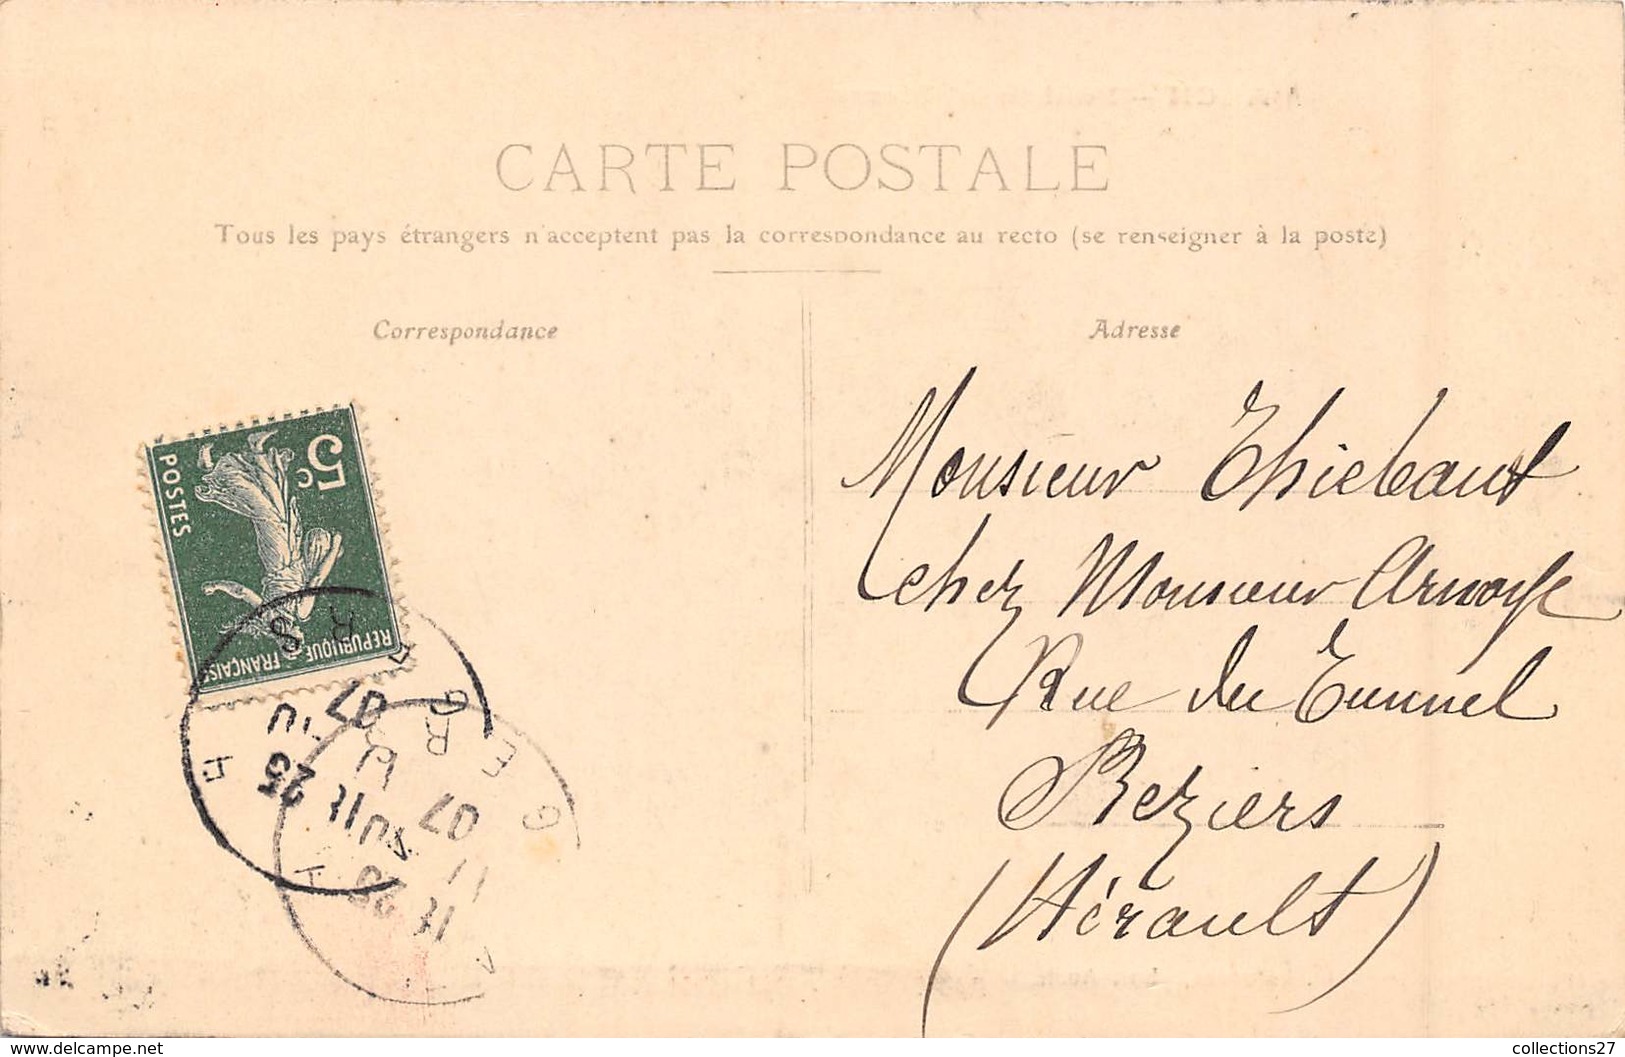 CARTE POSTALE
Tous les pays étrangers n'acceptent pas la correspondance au recto (se renseigner à la poste)
Correspondance
Adresse
5c
POSTES
REPUBLIQUE FRANÇAISE
Monsieur Thiebaut
chez Monsieur
Rue du Tunnel
Beziers
(Hérault)
25
07
07
delcampe.net
collections27